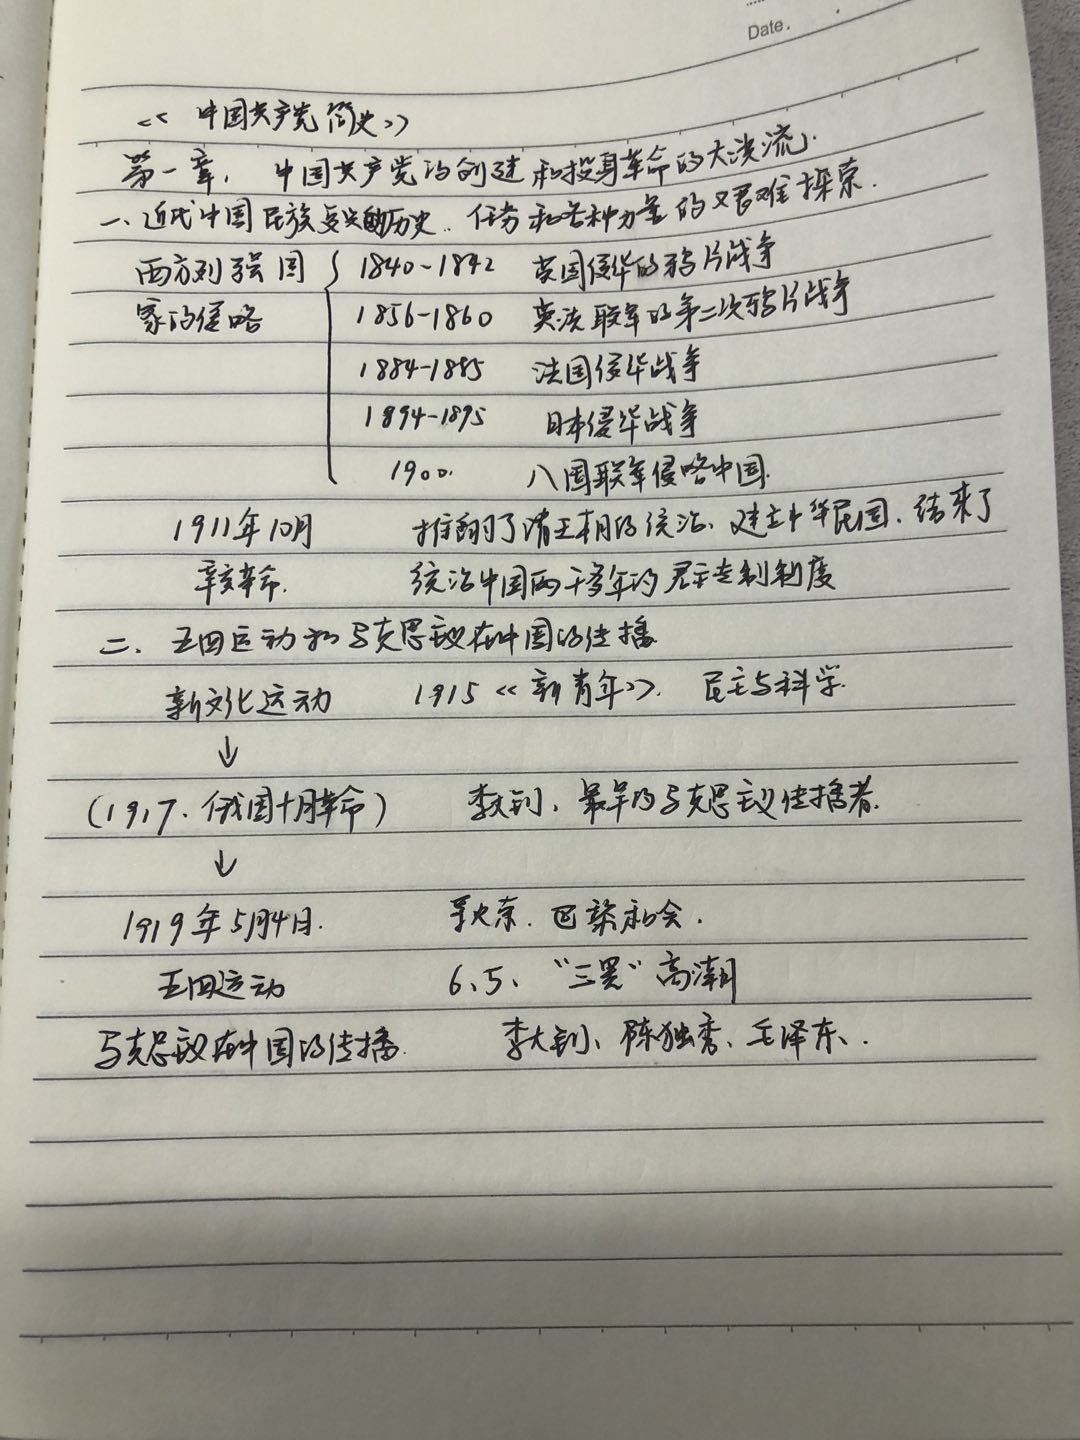 Date.
《中国共产党简史》
第一章、中国共产党的创建和投身革命的大洪流.
一、近代中国民族复兴的历史任务和各种力量的艰难探索.
西方列强国 1840-1842 英国侵华的鸦片战争
家的侵略 1856-1860 英法联军的第二次鸦片战争
1884-1885 法国侵华战争
1894-1895 日本侵华战争
1900. 八国联军侵略中国.
1911年10月 推翻了清王朝的统治、建立中华民国、结束了
辛亥革命. 统治中国两千多年的君主专制制度
二、五四运动和马克思主义在中国的传播
新文化运动 1915《新青年》. 民主与科学.
↓
(1917、俄国十月革命) 李大钊、最早的马克思主义传播者.
↓
1919年5月4日. 巴黎和会.
五四运动 6.5、“三罢”高潮
马克思主义在中国的传播. 李大钊、陈独秀、毛泽东、.